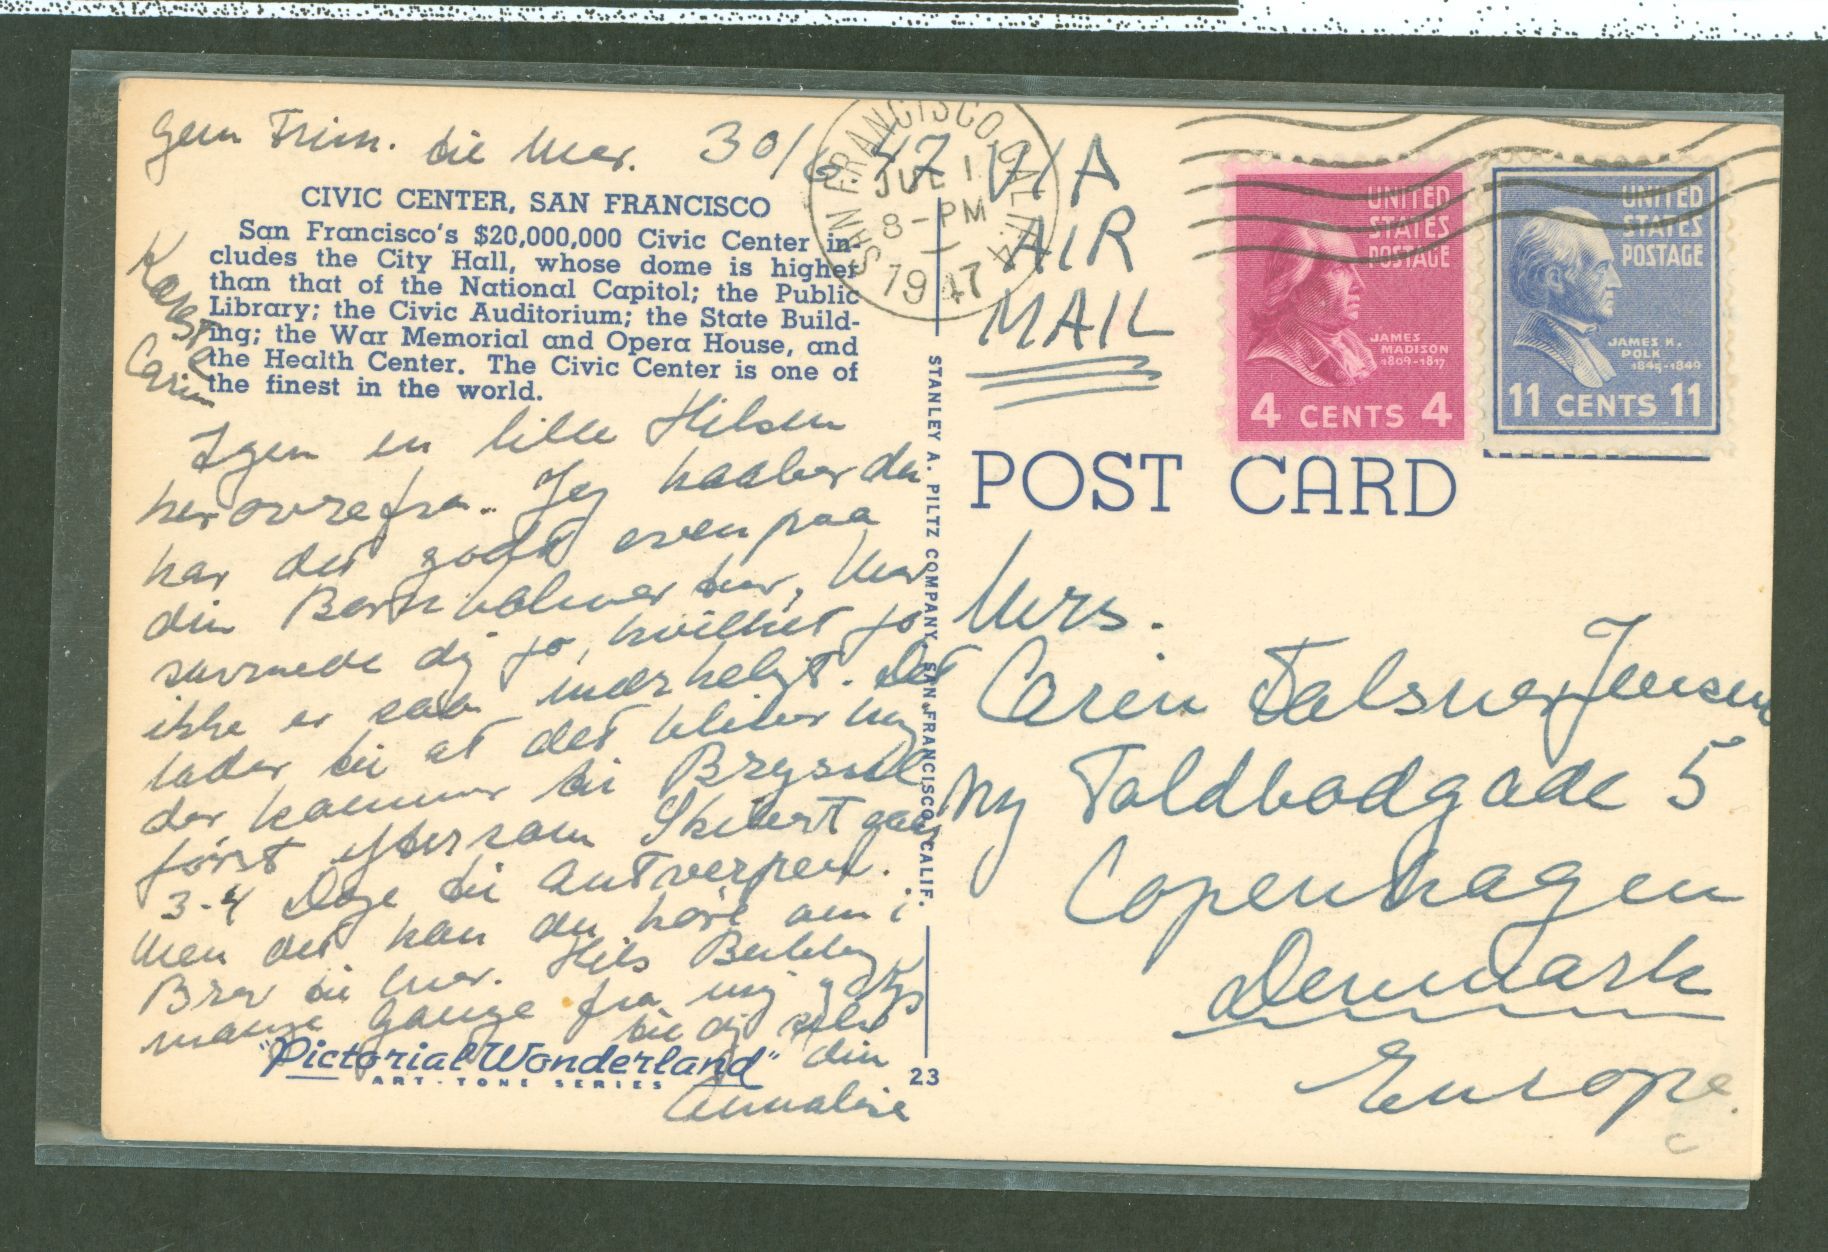 Gem Frim. til Mor. 30/6 47
CIVIC CENTER, SAN FRANCISCO
San Francisco's $20,000,000 Civic Center in-
cludes the City Hall, whose dome is higher
than that of the National Capitol; the Public
Library; the Civic Auditorium; the State Build-
ing; the War Memorial and Opera House, and
the Health Center. The Civic Center is one of
the finest in the world.
Kæreste
Carin
Igen en lille Hilsen
herovrefra. Jeg haaber du
har det godt oven paa
din Bornholmer tur, Mor
savnede dig jo, hvilket jo
ikke er saa mærkeligt. Det
lader til at det bliver mig
der kommer til Bryssel
først eftersom Skibet gaar
3-4 Dage til Antverpen.
Men det kan du höre om i
Brev til Mor. Hils Bubby
mange Gange fra mig
til dig selv
din
Annalise
"Pictorial Wonderland"
ART-TONE SERIES
STANLEY A. PILTZ COMPANY, SAN FRANCISCO, CALIF.
23
SAN FRANCISCO, CALIF. 4
JUL 1
8-PM
1947
VIA
AIR
MAIL
UNITED
STATES
POSTAGE
JAMES
MADISON
1809-1817
4 CENTS 4
UNITED
STATES
POSTAGE
JAMES K.
POLK
1845-1849
11 CENTS 11
POST CARD
Mrs.
Carin Falsner Jensen
Ny Toldbodgade 5
Copenhagen
Denmark
Europe.